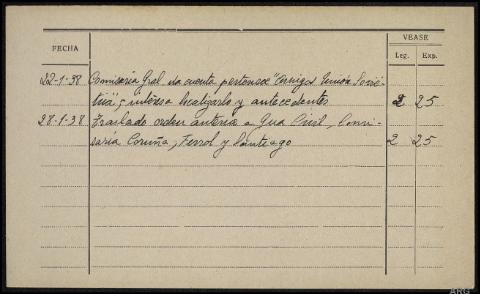 VEASE
FECHA
Leg. Exp.
22-1-38 Comisaria Gral da cuenta pertenece "Amigos Unión Sovié-
tica", e interesa localizarlo y antecedentes 2 25
28-1-38 Traslado orden anterior a Gua Civil, Comi-
saria Coruña, Ferrol y Santiago 2 25